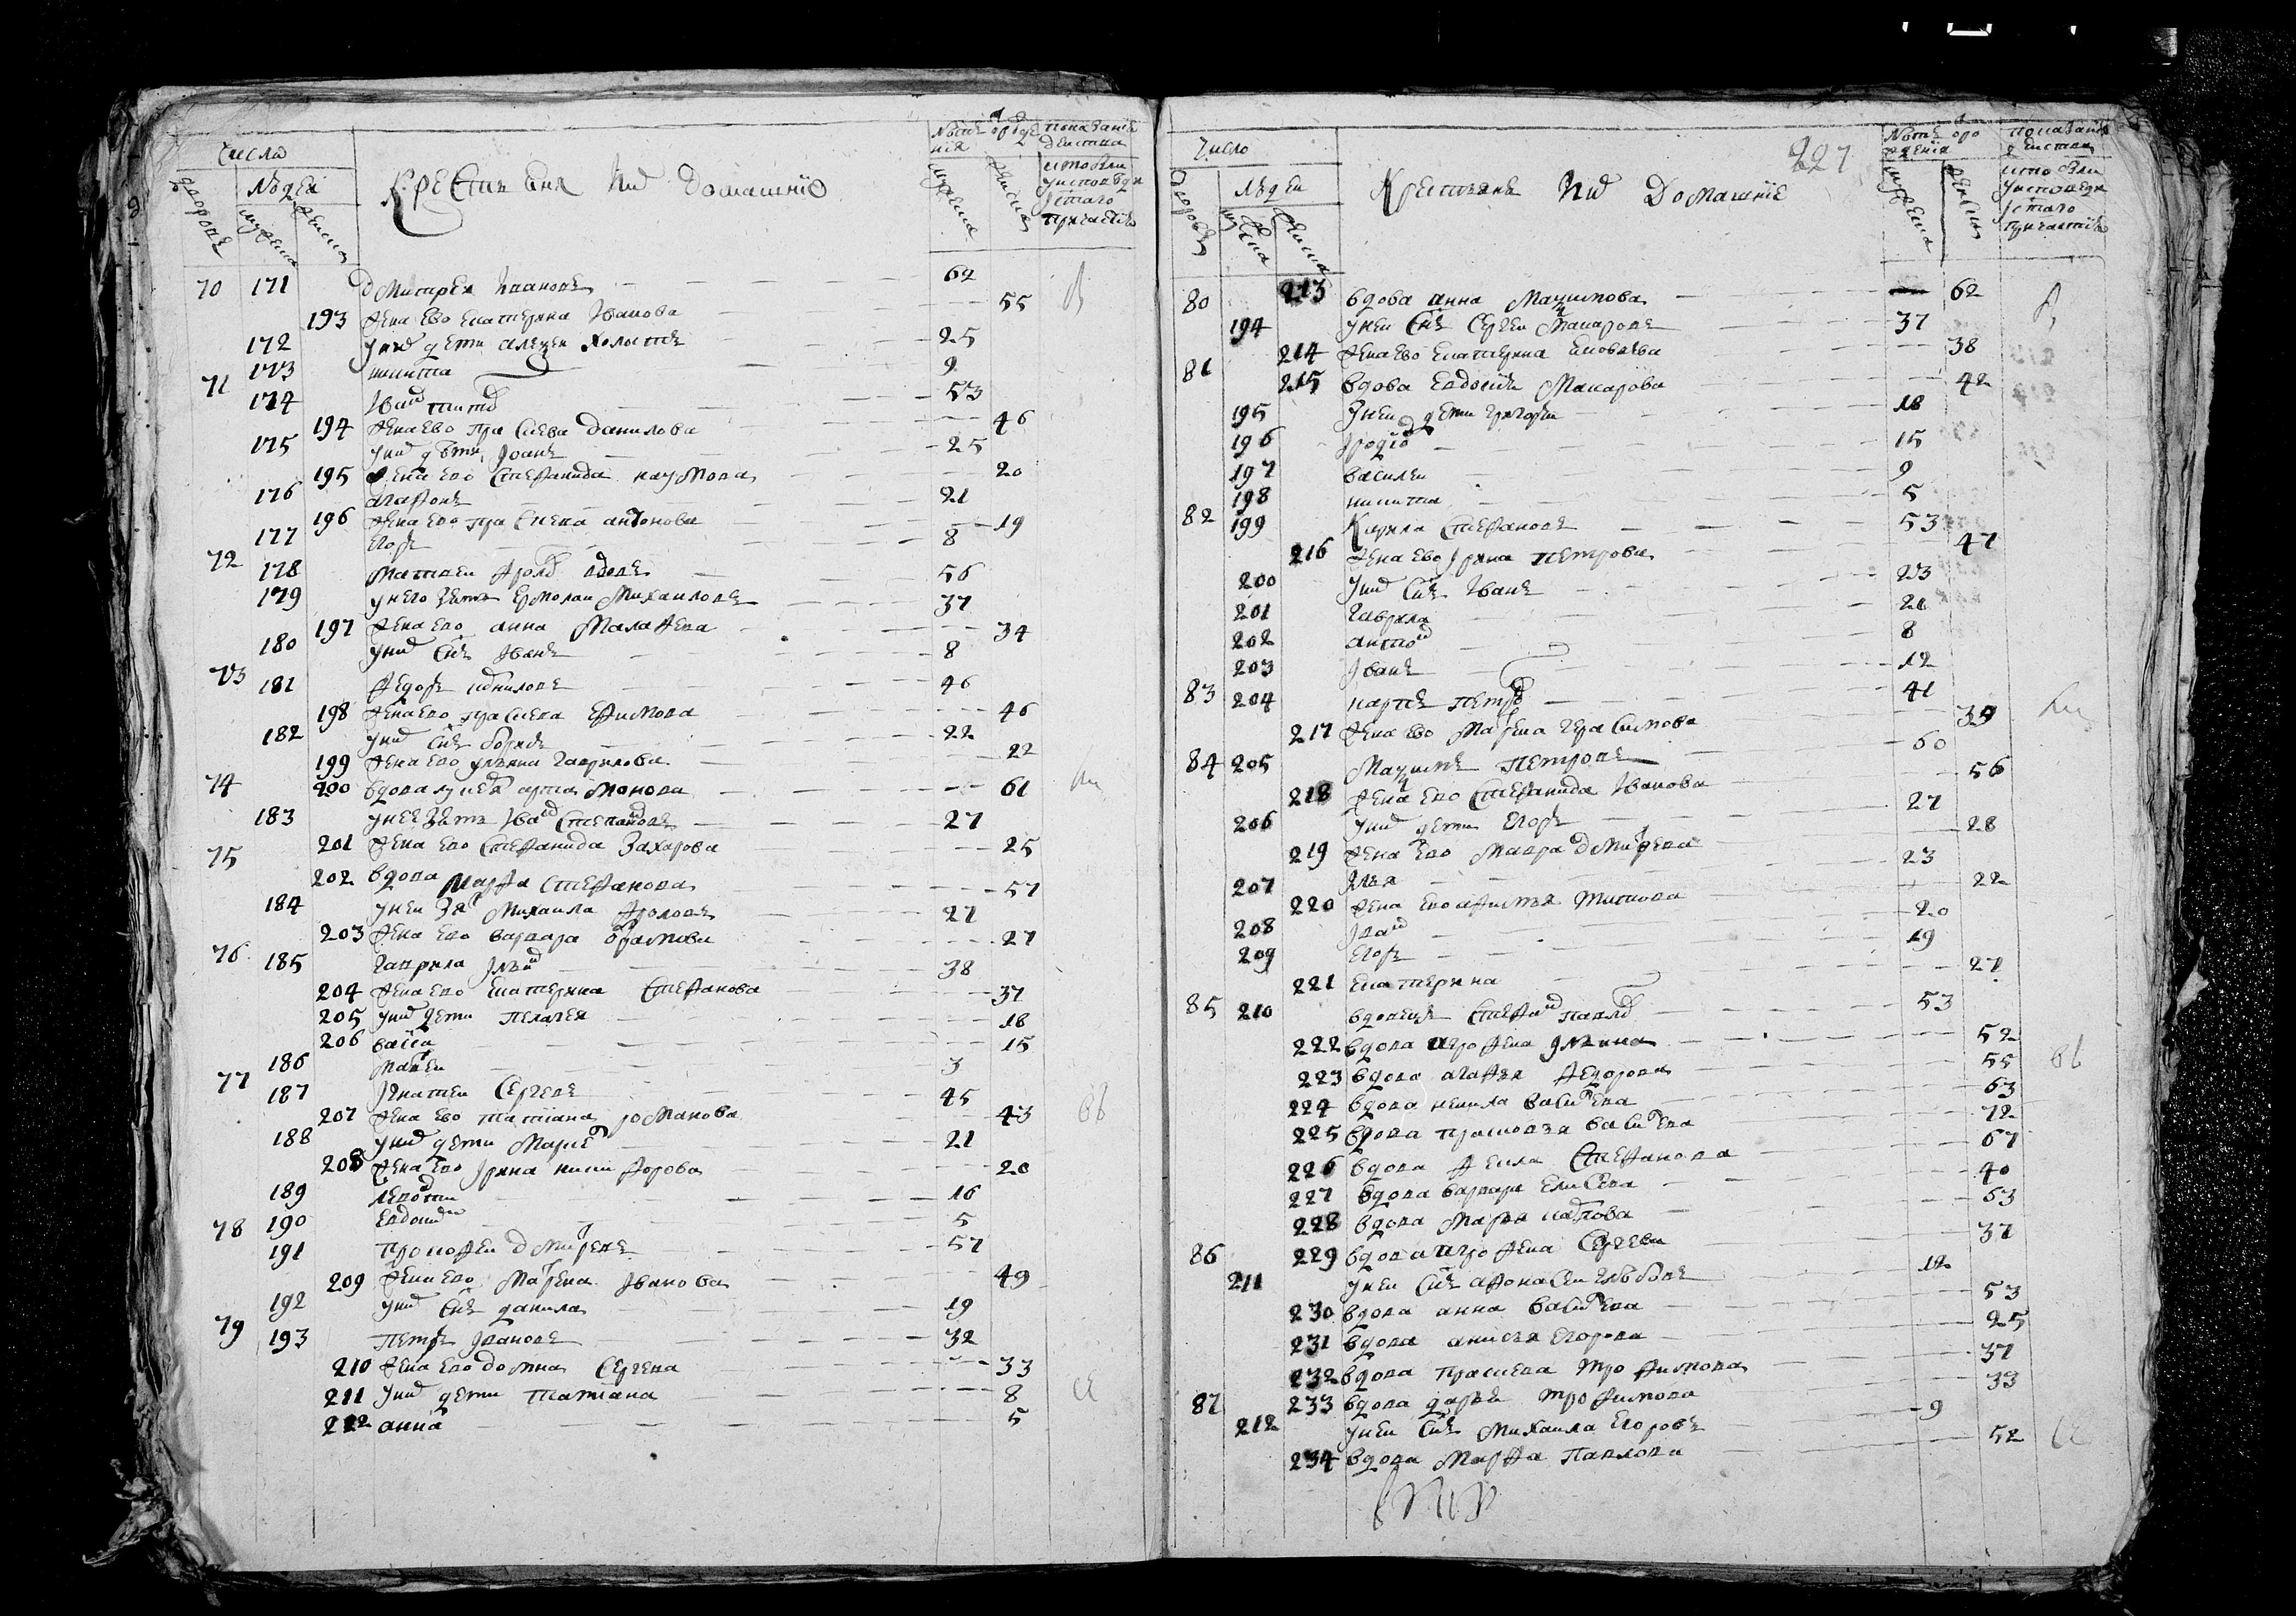 Число
Людей
дворовъ
мужеска
женска
Крестьяня ихъ домашнiе
мужеска
женска
показанiе
70 171 Дмитрей Ивановъ 62
193 жена ево Екатерина Иванова 55
172 у ниⷯ дети Алеѯей холостъ 25
173 Никита 9
71 174 Иваⷩ Тито 53
194 жена ево Праскева Данилова 46
175 у ниⷯ дѣти Iоанъ 25
195 жена ево Стефанида Наумова 20
176 Агафонъ 21
196 жена ево Праскева Антонова 19
177 Егоръ 8
72 178 Матвеи Фроло вдовъ 56
179 у него зять Ермолаи Михаиловъ 37
197 жена ево Анна Малафева 34
180 у ниⷯ снъ Иванъ 8
73 181 Федоръ 46
198 жена ево Праскева Ефимова 46
182 у ниⷯ снъ Борисъ 22
199 жена ево Ульяна Гаврилова 22
74 200 вдова Лукея Артамонова 61
183 у нее зять Иваⷩ Степановъ 27
201 жена ево Стефанида Захарова 25
75 202 вдова Марфа Стефанова 57
184 у неи зяⷮ Михаила Фроловъ 27
203 жена ево Варвара 27
76 185 Гаврила Ильиⷩ 38
204 жена ево Екатерина Стефанова 37
205 у ниⷯ дети Пелагея 18
206 Васса 15
186 Матвеи 3
77 187 Игнатеи Сергевъ 45
207 жена ево Татiана Романова 43
188 у ниⷯ дети Марке 21
208 жена ево Ирина Никифорова 20
189 Левонти 16
190 Евдоким 5
78 191 Прокофеи Дмитревъ 57
209 жена ево Матрена Иванова 49
192 у ниⷯ снъ Данила 19
79 193 Петръ Ивановъ 32
210 жена ево Домна Сергева 33
211 у ниⷯ дети Татiана 8
212 Анна 5
227
Число
Людеи
дворовъ
Крестьяне ихъ домашнiе
мужеска
женска
80 213 вдова Анна Маѯимова 62
194 у неи снъ Сергеи Макаровъ 37
214 жена ево Екатерина 38
81 215 вдова Евдокiя Макарова 42
195 у неи дети Григореи 18
196 Iродiо 15
197 Василеи 9
198 Никита 5
82 199 Кирила Стефановъ 53
216 жена ево Ирина Петрова 47
200 у ниⷯ снъ Иванъ 23
201 Гаврила 20
202 Антоⷩ 8
203 Иванъ 12
83 204 Карпъ Петро 41
217 жена ево Матрена Герасимова 39
84 205 Маѯимъ Петровъ 60
218 жена ево Стефанида Иванова 56
206 у ниⷯ дети Егоръ 27
219 жена ево Мавра Дмитрева 28
207 Илья 23
220 жена ево Афимья Титова 22
208 Иваⷩ 20
209 Егоръ 19
221 Екатерина 27
85 210 вдовецъ Стефаⷩ Павло 53
222 вдова Агрофена Ильина 52
223 вдова Агафья Федорова 55
224 вдова Ненила Василева 63
225 вдова Прасковья Василева 72
226 вдова Фекла Стефанова 67
227 вдова Варвара Елисева 40
228 вдова Марья 53
86 229 вдова Агрофена Сергева 37
211 у неи снъ Афонасеи Глѣбовъ 12
230 вдова Анна Василева 53
231 вдова Анисья Егорова 25
232 вдова Праскева Трофимова 37
87 233 вдова Дарья Трофимова 33
212 у неи снъ Михаила Егоровъ 9
234 вдова Марфа Павлова 52